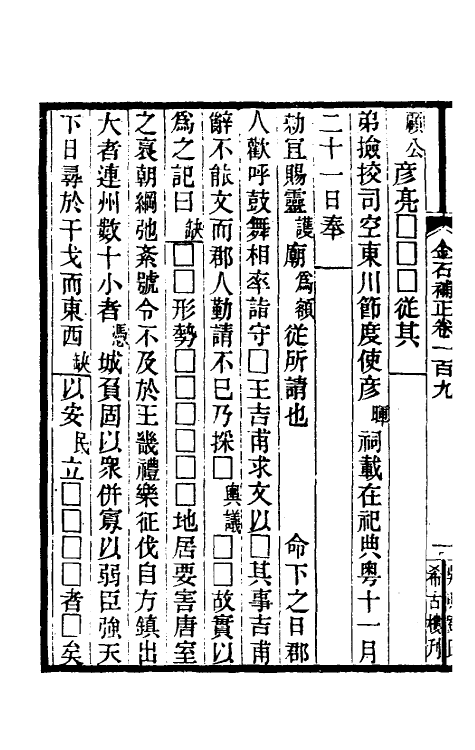 金石補正卷一百九
一
吳興劉氏
希古樓刊
顧公彥亮□□□從其
弟撿挍司空東川節度使彥暉祠載在祀典粵十一月
二十一日奉
勑宜賜靈護廟為額從所請也　命下之日郡
人歡呼鼓舞相率詣守□王吉甫求文以□其事吉甫
辭不能文而郡人勤請不已乃採□輿議□□故實以
為之記曰缺□□形勢□□□□□□地居要害唐室
之衰朝綱弛紊號令不及於王畿禮樂征伐自方鎮出
大者連州數十小者憑城負固以眾併寡以弱臣強天
下日尋於干戈而東西缺以安民立□□□□者□矣